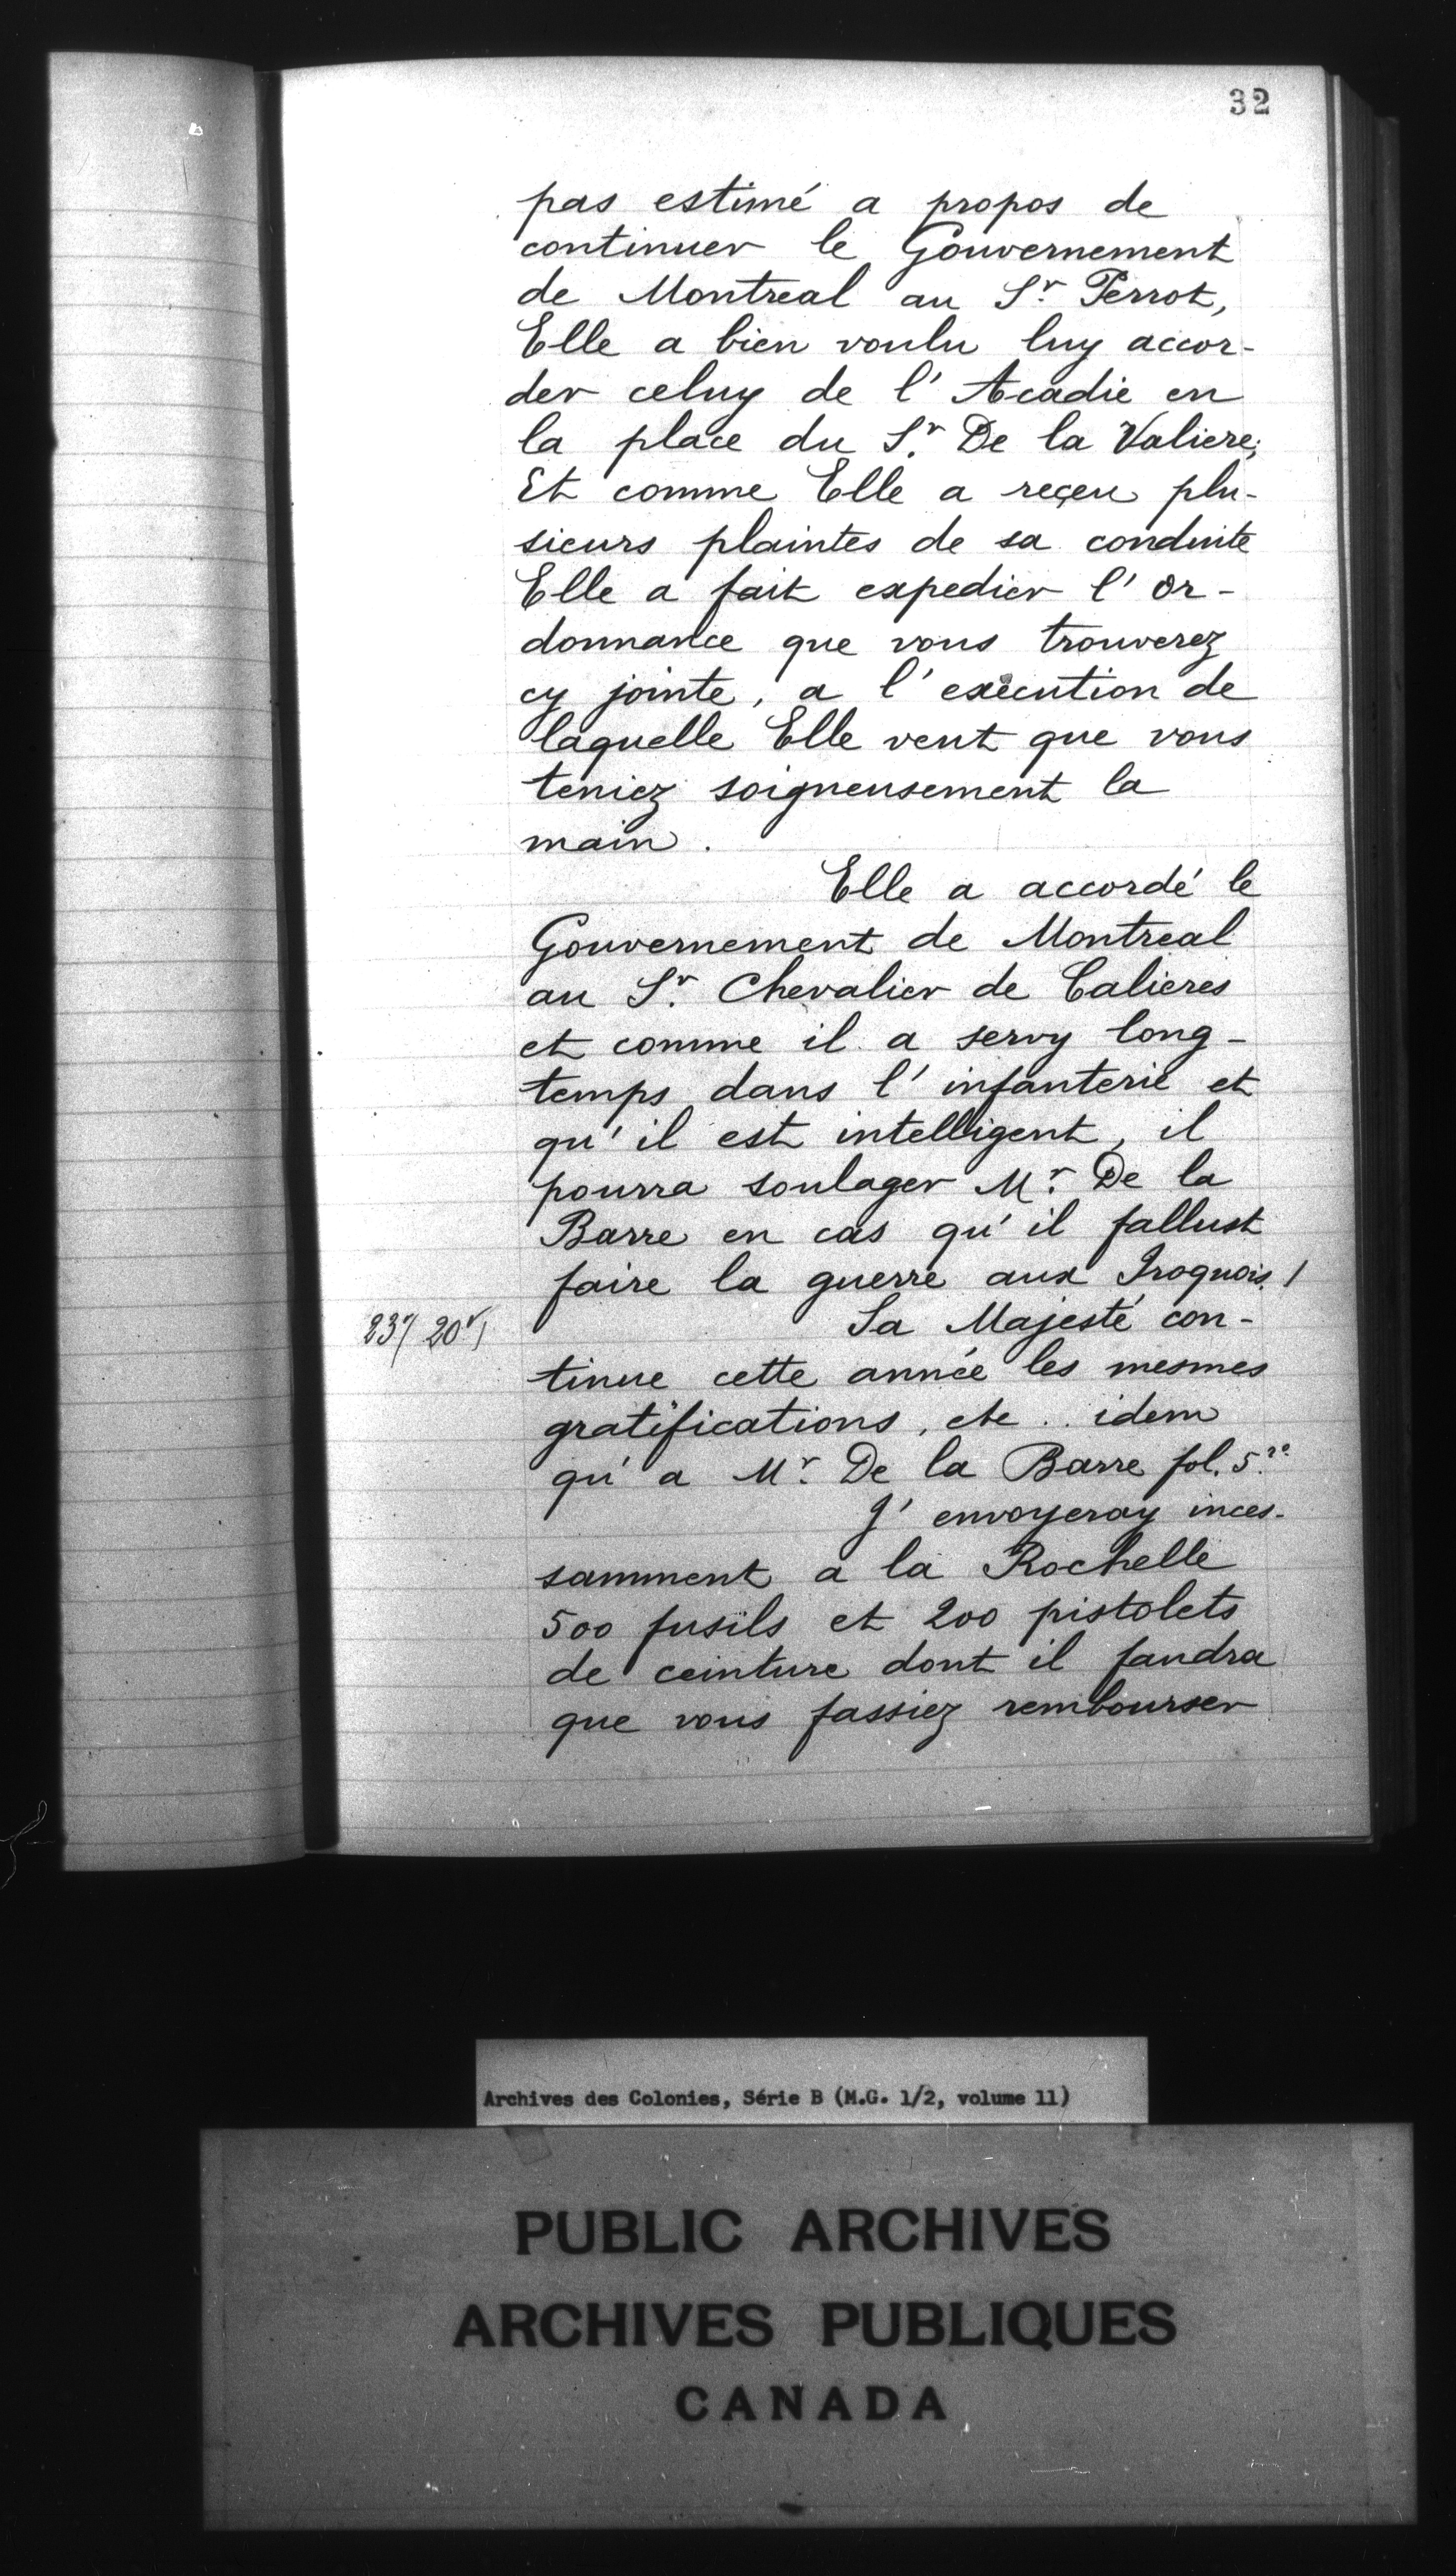 32
pas estimé a propos de
continuer le Gouvernement
de Montreal au Sr. Perrot,
Elle a bien voulu luy accor-
der celuy de l'Acadie en
la place du Sr. De la Valiere;
Et comme Elle a reçeu plu-
sieurs plaintes de sa conduite
Elle a fait expedier l'or-
donnance que vous trouverez
cy jointe, a l'execution de
laquelle Elle veut que vous
teniez soigneusement la
main.
Elle a accordé le
Gouvernement de Montreal
au Sr. Chevalier de Calieres
et comme il a servy long-
temps dans l'infanterie et
qu'il est intelligent, il
pourra soulager Mr. De la
Barre en cas qu'il fallust
faire la guerre aux Iroquois. /
Sa Majesté con-
tinue cette année les mesmes
gratifications, etc.. idem
qu'a Mr. De la Barre fol. 5.ro
J'envoyeray inces-
samment a la Rochelle
500 fusils et 200 pistolets
de ceinture dont il faudra
que vous fassiez rembourser
Archives des Colonies, Série B (M.G. 1/2, volume 11)
PUBLIC ARCHIVES
ARCHIVES PUBLIQUES
CANADA